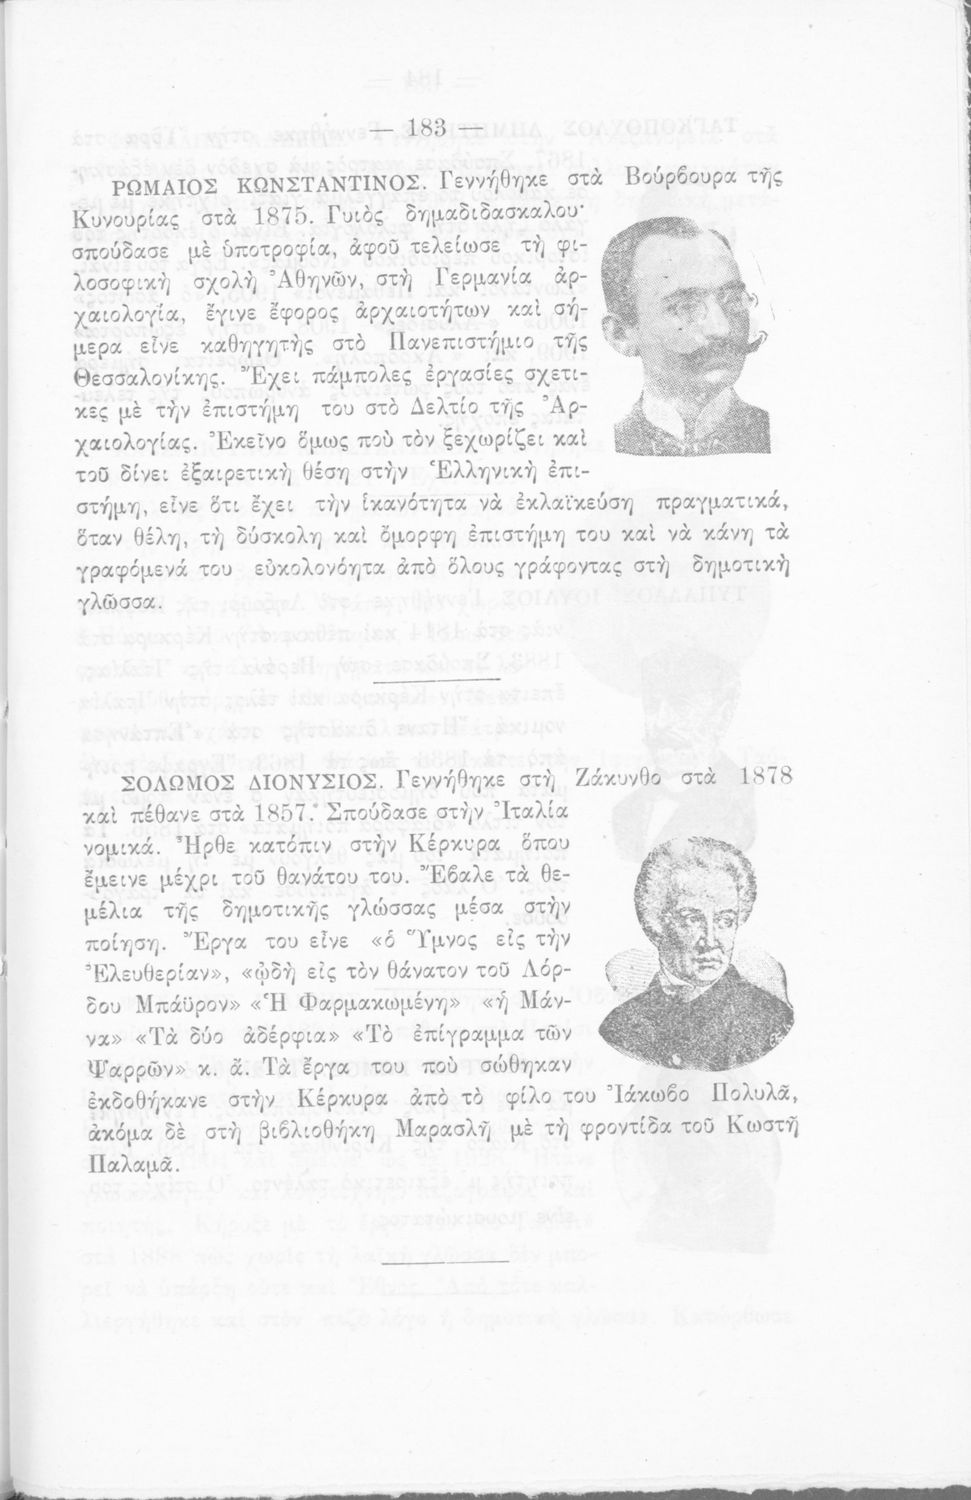 — 183 —
ΡΩΜΑΙΟΣ ΚΩΝΣΤΑΝΤΙΝΟΣ. Γεννήθηκε στὰ Βούρβουρα τῆς
Κυνουρίας στὰ 1875. Γυιὸς δημαδιδασκαλου·
σπούδασε μὲ ὑποτροφία, ἀφοῦ τελείωσε τὴ φι-
λοσοφικὴ σχολὴ Ἀθηνῶν, στὴ Γερμανία ἀρ-
χαιολογία, ἔγινε ἔφορος ἀρχαιοτήτων καὶ σή-
μερα εἶνε καθηγητὴς στὸ Πανεπιστήμιο τῆς
Θεσσαλονίκης. Ἔχει πάμπολες ἐργασίες σχετι-
κες μὲ τὴν ἐπιστήμη του στὸ Δελτίο τῆς Ἀρ-
χαιολογίας. Ἐκεῖνο ὅμως ποὺ τὸν ξεχωρίζει καὶ
τοῦ δίνει ἐξαιρετικὴ θέση στὴν Ἑλληνικὴ ἐπι-
στήμη, εἶνε ὅτι ἔχει τὴν ἱκανότητα νὰ ἐκλαϊκεύση πραγματικά,
ὅταν θέλη, τὴ δύσκολη καὶ ὄμορφη ἐπιστήμη του καὶ νὰ κάνη τὰ
γραφόμενά του εὐκολονόητα ἀπὸ ὅλους γράφοντας στὴ δημοτικὴ
γλῶσσα.
ΣΟΛΩΜΟΣ ΔΙΟΝΥΣΙΟΣ. Γεννήθηκε στὴ Ζάκυνθο στὰ 1878
καὶ πέθανε στὰ 1857. Σπούδασε στὴν Ἰταλία
νομικά. Ἦρθε κατόπιν στὴν Κέρκυρα ὅπου
ἔμεινε μέχρι τοῦ θανάτου του. Ἔβαλε τὰ θε-
μέλια τῆς δημοτικῆς γλώσσας μέσα στὴν
ποίηση. Ἔργα του εἶνε «ὁ Ὕμνος εἰς τὴν
Ἐλευθερίαν», «ᾠδὴ εἰς τὸν θάνατον τοῦ Λόρ-
δου Μπάϋρον» «Ἡ Φαρμακωμένη» «ἡ Μάν-
να» «Τὰ δύο ἀδέρφια» «Τὸ ἐπίγραμμα τῶν
Ψαρρῶν» κ. ἄ. Τὰ ἔργα του ποὺ σώθηκαν
ἐκδοθήκανε στὴν Κέρκυρα ἀπὸ τὸ φίλο του Ἰάκωβο Πολυλᾶ,
ἀκόμα δὲ στὴ βιβλιοθήκη Μαρασλῆ μὲ τὴ φροντίδα τοῦ Κωστῆ
Παλαμᾶ.